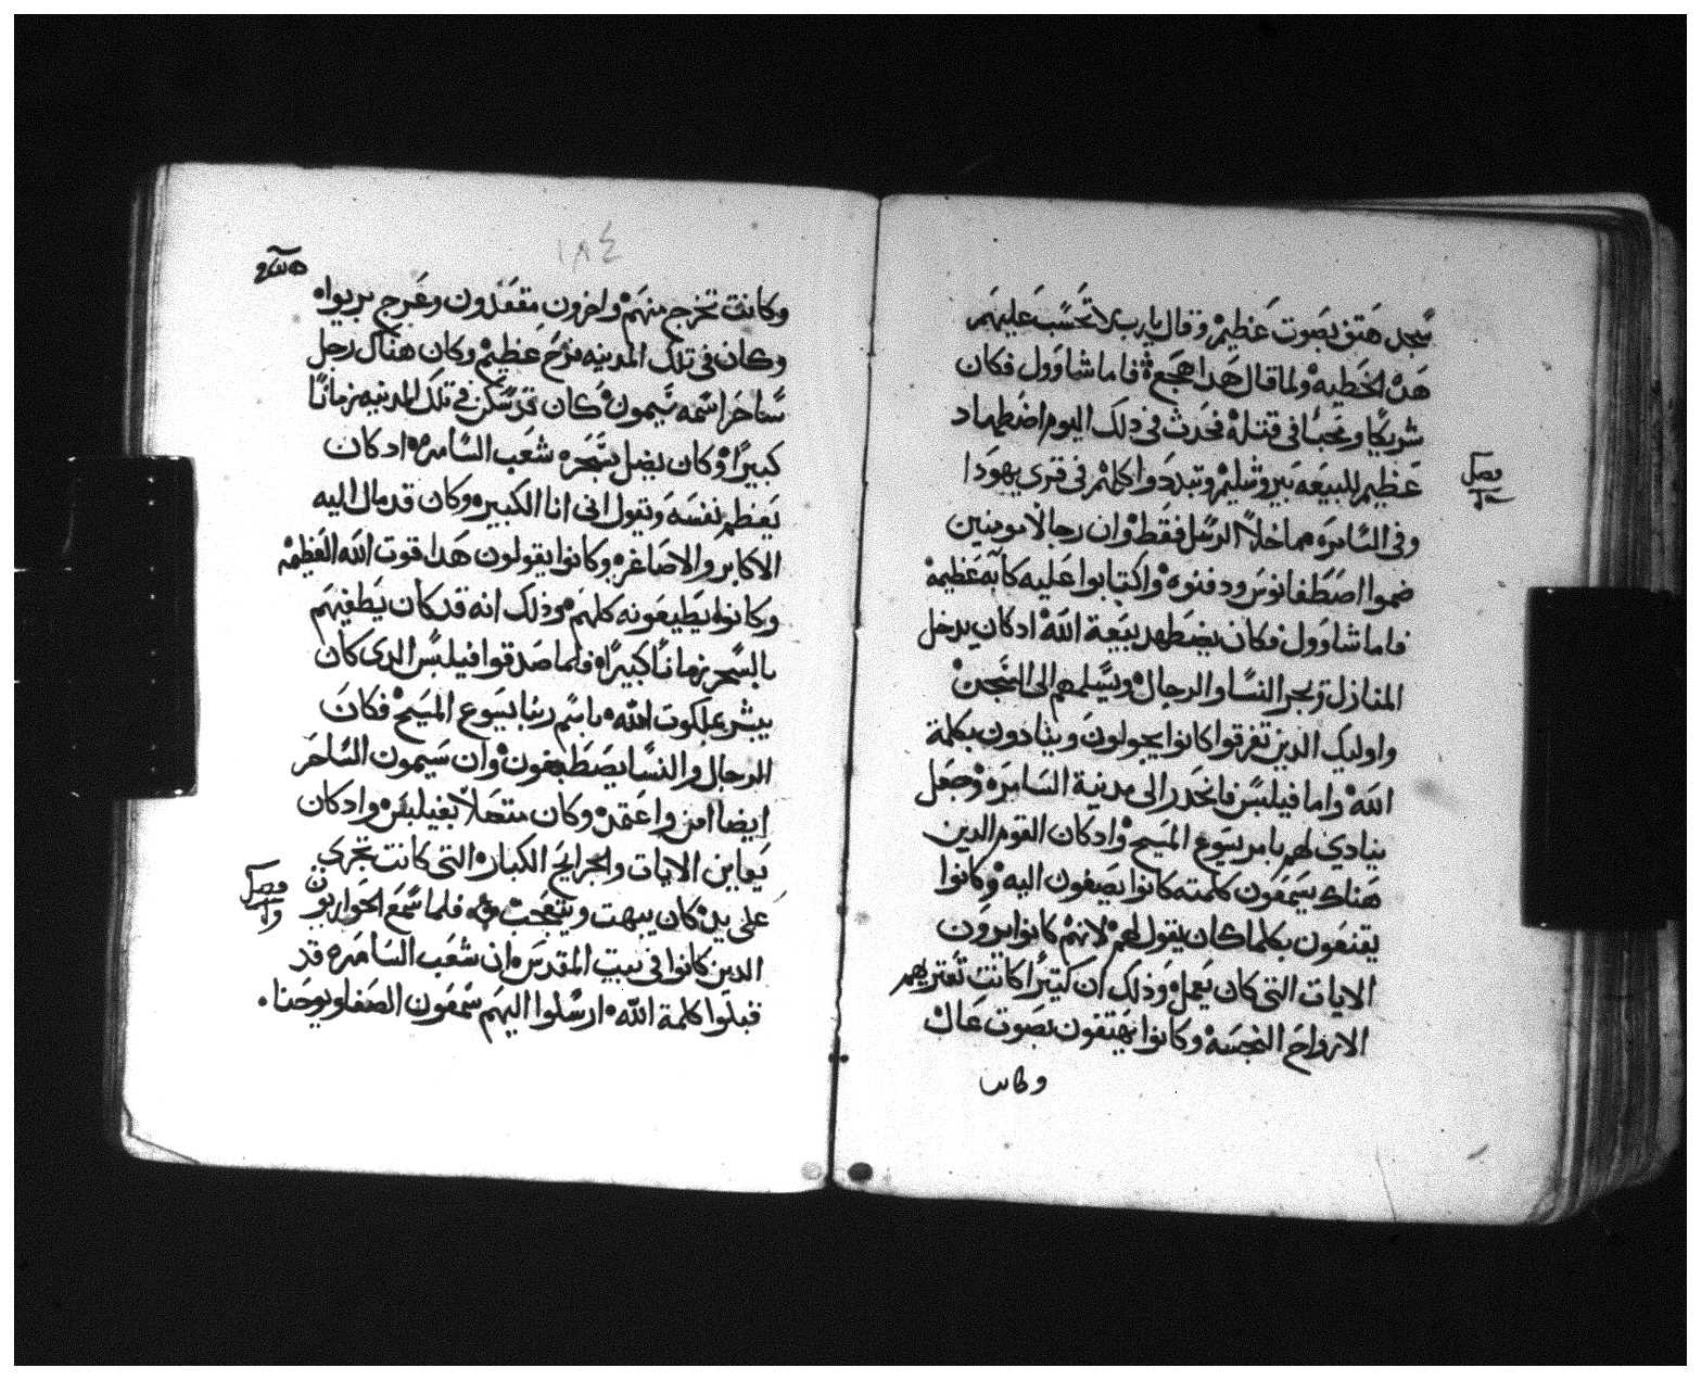 سجد هتف بصوت عظيم وقال يارب لا تحسب عليهم
هده الخطيه ولما قال هدا هجع فاما شاوول فكان
شريكا ومحبا فى قتله فحدث فى دلك اليوم اضطهاد
عظيم للبيعه بيروشليم وتبددوا كلهم فى قرى يهودا
وفى السامره مما خلا الرسل فقط وان رجالا مومنين
ضموا اصطفانوس ودفنوه واكتابوا عليه كآبه عظيمه
فاما شاوول فكان يضطهد بيعة الله ادكان يدخل
المنازل ويجر النسا والرجال ويسلمهم الى السجن
واوليك الدين تفرقوا كانوا يجولون وينادون بكلمة
الله واما فيلبس فانحدر الى مدينة السامره وجعل
ينادي لهم بامر يسوع المسيح وادكان القوم الدين
هناك يسمعون كلمته كانوا يصغون اليه وكانوا
يقنعون بكلما كان يقول لهم لانهم كانوا يرون
الايات التى كان يعمل وذلك ان كتيرا كانت تعتريهم
الارواح النجسه وكانوا يهتفون بصوت عال
وكانت
١٨٤
وكانت تخرج منهم واخرون مقعدون وعرج بريوا
وكان فى تلك المدينه فرح عظيم وكان هناك رجل
ساحر اسمه سيمون كان قد سكن فى تلك المدينه زمانا
كبيرا وكان يضل بسحره شعب السامره ادكان
يعظم نفسه ويقول انى انا الكبير وكان قد مال اليه
الاكابر والاصاغر وكانوا يقولون هدا قوت الله العظيمه
وكانوا يطيعونه كلهم وذلك انه قد كان يطغيهم
بالسحر زمانا كبيرا فلما صدقوا فيلبس الدى كان
يبشر بملكوت الله باسم ربنا يسوع المسيح فكان
الرجال والنسا يصطبغون وان سيمون الساحر
ايضا امن واعتمد وكان متصلا بفيلبس وادكان
يعاين الايات والجرايح الكبار التى كانت تجرى
على يده كان يبهت ويتعجب فلما سمع الحواريون
الدين كانوا فى بيت المقدس ان شعب السامره قد
قبلوا كلمة الله ارسلوا اليهم سمعون الصفا ويوحنا
فصل
فصل